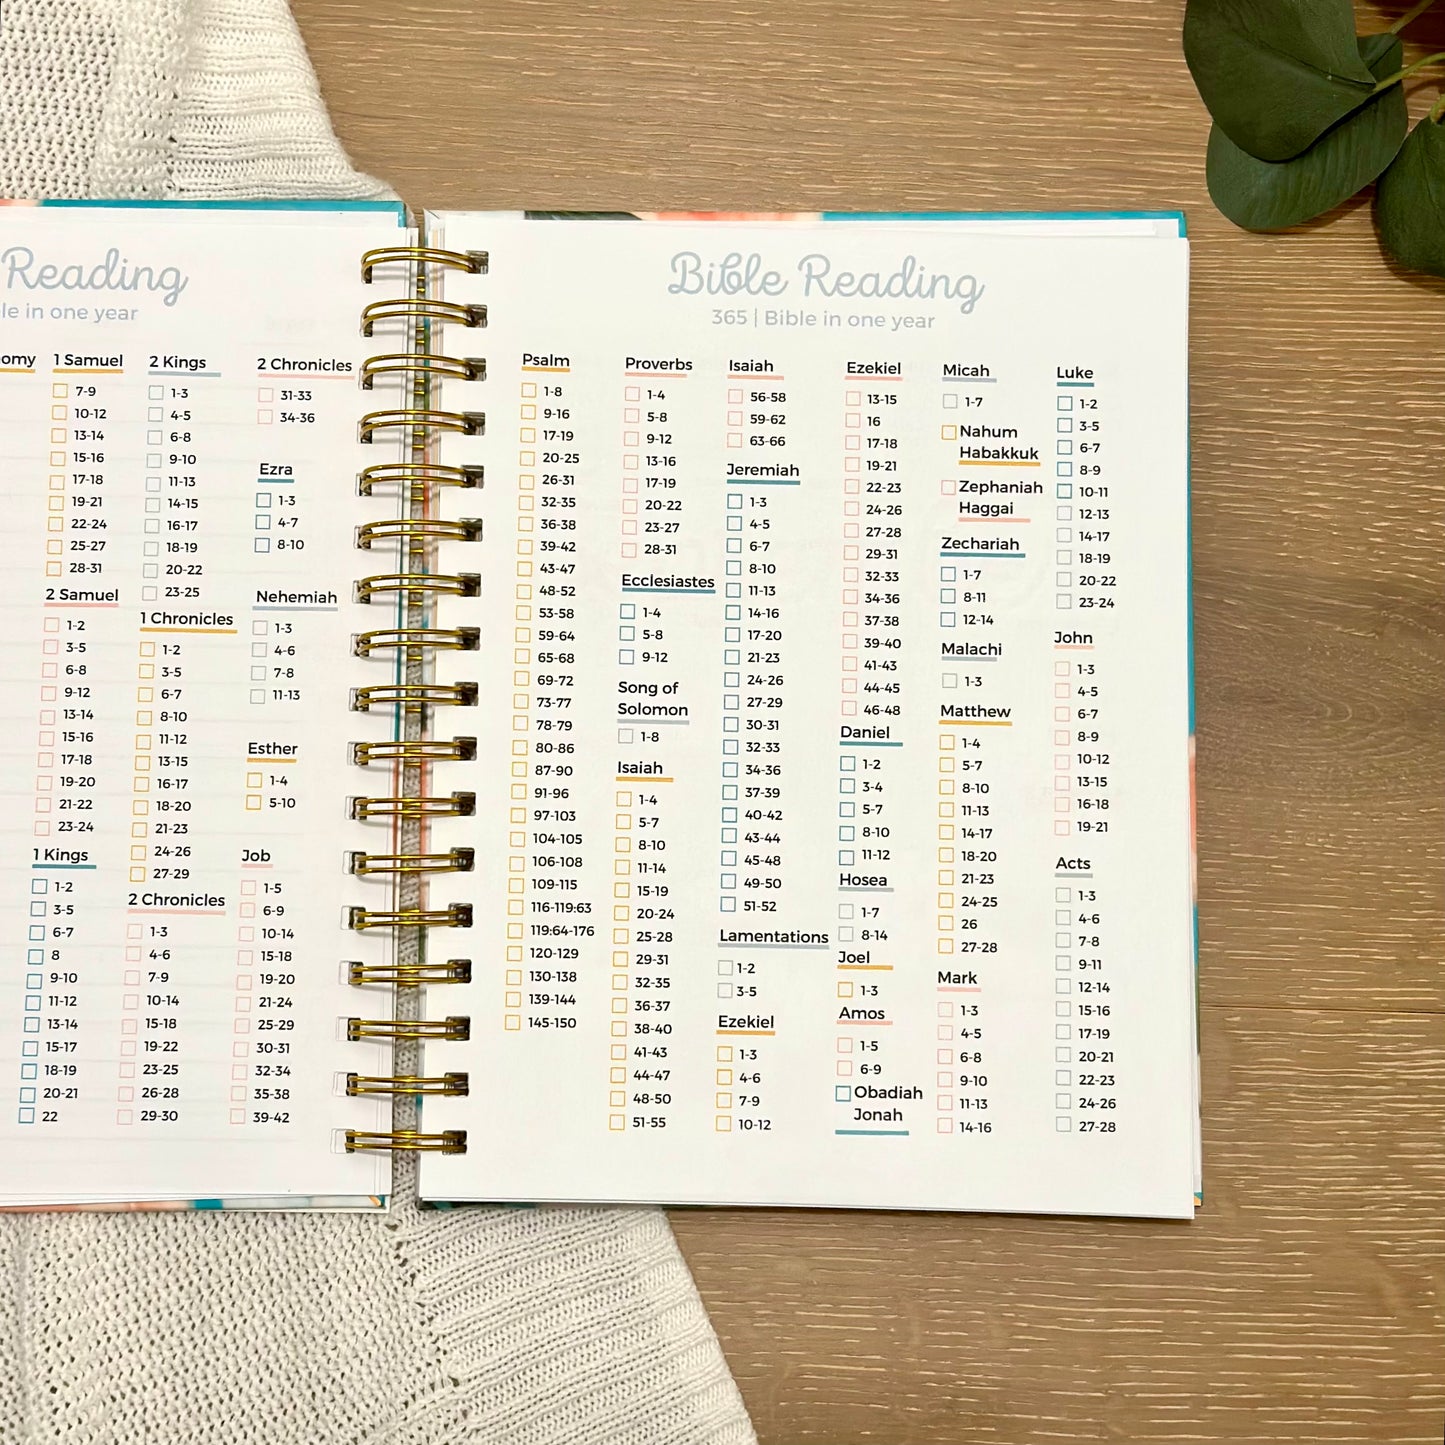 Reading
le in one year
omy
1 Samuel
7-9
10-12
13-14
15-16
17-18
19-21
22-24
25-27
28-31
2 Samuel
1-2
3-5
6-8
9-12
13-14
15-16
17-18
19-20
21-22
23-24
1 Kings
1-2
3-5
6-7
8
9-10
11-12
13-14
15-17
18-19
20-21
22
2 Kings
1-3
4-5
6-8
9-10
11-13
14-15
16-17
18-19
20-22
23-25
1 Chronicles
1-2
3-5
6-7
8-10
11-12
13-15
16-17
18-20
21-23
24-26
27-29
2 Chronicles
1-3
4-6
7-9
10-14
15-18
19-22
23-25
26-28
29-30
2 Chronicles
31-33
34-36
Ezra
1-3
4-7
8-10
Nehemiah
1-3
4-6
7-8
11-13
Esther
1-4
5-10
Job
1-5
6-9
10-14
15-18
19-20
21-24
25-29
30-31
32-34
35-38
39-42
Bible Reading
365 | Bible in one year
Psalm
1-8
9-16
17-19
20-25
26-31
32-35
36-38
39-42
43-47
48-52
53-58
59-64
65-68
69-72
73-77
78-79
80-86
87-90
91-96
97-103
104-105
106-108
109-115
116-119:63
119:64-176
120-129
130-138
139-144
145-150
Proverbs
1-4
5-8
9-12
13-16
17-19
20-22
23-27
28-31
Ecclesiastes
1-4
5-8
9-12
Song of
Solomon
1-8
Isaiah
1-4
5-7
8-10
11-14
15-19
20-24
25-28
29-31
32-35
36-37
38-40
41-43
44-47
48-50
51-55
Isaiah
56-58
59-62
63-66
Jeremiah
1-3
4-5
6-7
8-10
11-13
14-16
17-20
21-23
24-26
27-29
30-31
32-33
34-36
37-39
40-42
43-44
45-48
49-50
51-52
Lamentations
1-2
3-5
Ezekiel
1-3
4-6
7-9
10-12
Ezekiel
13-15
16
17-18
19-21
22-23
24-26
27-28
29-31
32-33
34-36
37-38
39-40
41-43
44-45
46-48
Daniel
1-2
3-4
5-7
8-10
11-12
Hosea
1-7
8-14
Joel
1-3
Amos
1-5
6-9
Obadiah
Jonah
Micah
1-7
Nahum
Habakkuk
Zephaniah
Haggai
Zechariah
1-7
8-11
12-14
Malachi
1-3
Matthew
1-4
5-7
8-10
11-13
14-17
18-20
21-23
24-25
26
27-28
Mark
1-3
4-5
6-8
9-10
11-13
14-16
Luke
1-2
3-5
6-7
8-9
10-11
12-13
14-17
18-19
20-22
23-24
John
1-3
4-5
6-7
8-9
10-12
13-15
16-18
19-21
Acts
1-3
4-6
7-8
9-11
12-14
15-16
17-19
20-21
22-23
24-26
27-28